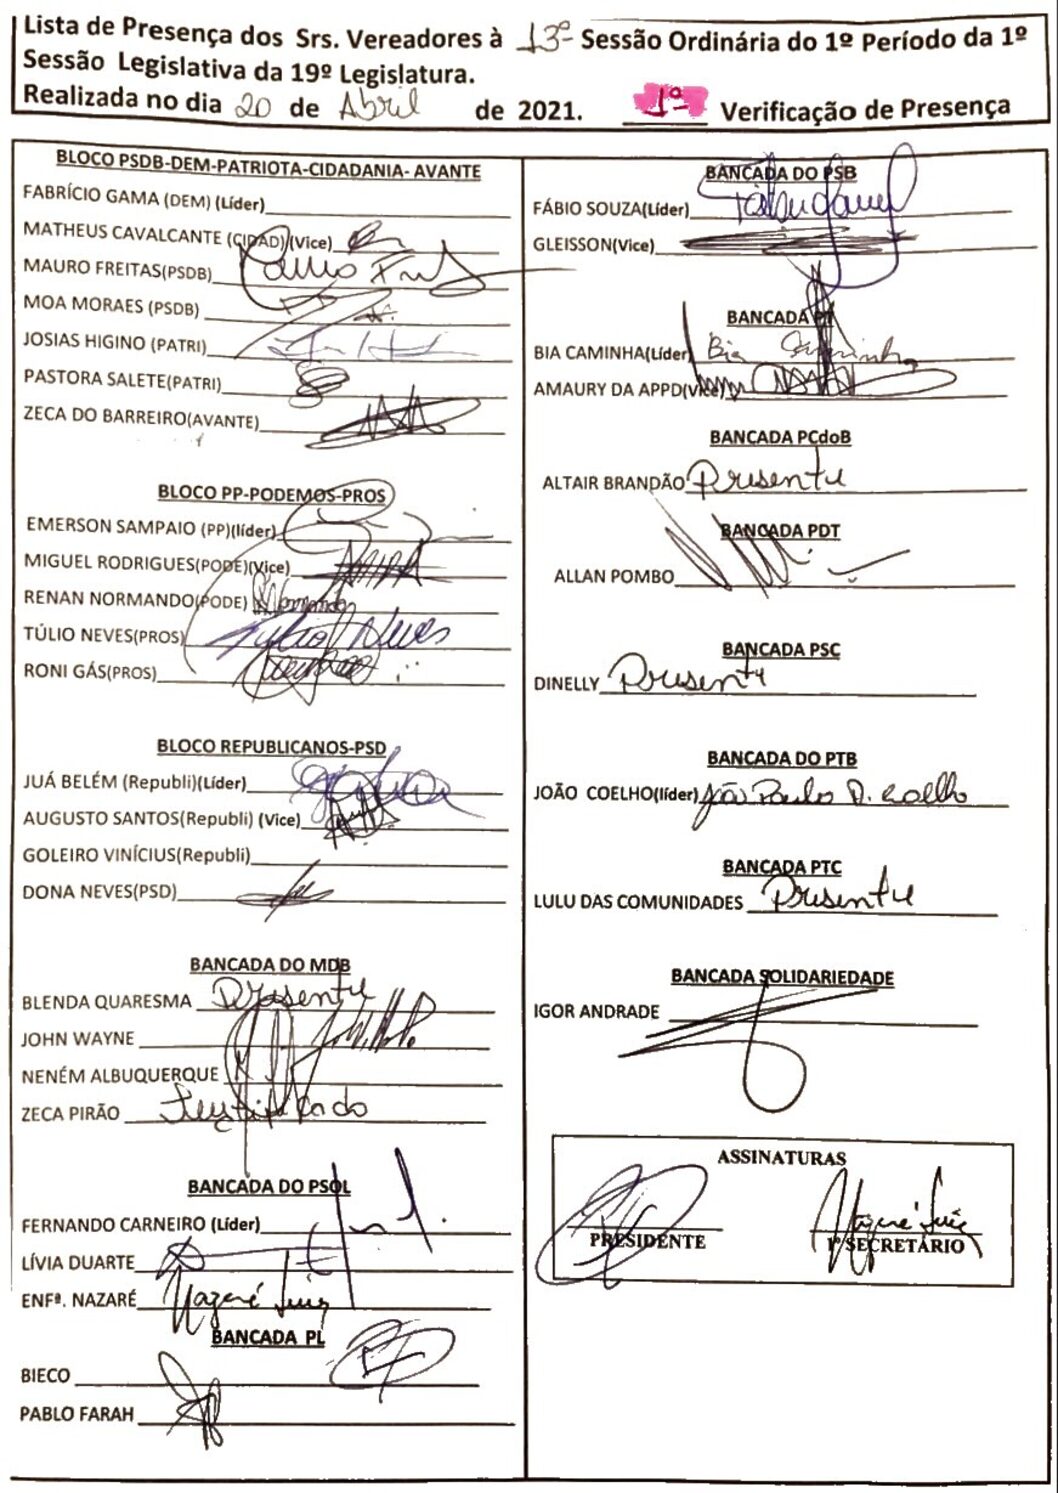 Lista de Presença dos Srs. Vereadores à 13ª Sessão Ordinária do 1º Período da 1º
Sessão Legislativa da 19º Legislatura.
Realizada no dia 20 de Abril de 2021. 1ª Verificação de Presença
BLOCO PSDB-DEM-PATRIOTA-CIDADANIA- AVANTE
FABRÍCIO GAMA (DEM) (Líder)
MATHEUS CAVALCANTE (CIDAD)(Vice)
MAURO FREITAS(PSDB)
MOA MORAES (PSDB)
JOSIAS HIGINO (PATRI)
PASTORA SALETE(PATRI)
ZECA DO BARREIRO(AVANTE)
BLOCO PP-PODEMOS-PROS
EMERSON SAMPAIO (PP)(líder)
MIGUEL RODRIGUES(PODE)(Vice)
RENAN NORMANDO(PODE) Normando
TÚLIO NEVES(PROS) Túlio Neves
RONI GÁS(PROS)
BLOCO REPUBLICANOS-PSD
JUÁ BELÉM (Republi)(Líder)
AUGUSTO SANTOS(Republi) (Vice)
GOLEIRO VINÍCIUS(Republi)
DONA NEVES(PSD)
BANCADA DO MDB
BLENDA QUARESMA Presente
JOHN WAYNE
NENÉM ALBUQUERQUE
ZECA PIRÃO Justificado
BANCADA DO PSOL
FERNANDO CARNEIRO (Líder)
LÍVIA DUARTE
ENFª. NAZARÉ Nazaré Luiz
BANCADA PL
BIECO
PABLO FARAH
BANCADA DO PSB
FÁBIO SOUZA(Líder)
GLEISSON(Vice)
BANCADA PT
BIA CAMINHA(Líder) Bia Caminha
AMAURY DA APPD(Vice)
BANCADA PCdoB
ALTAIR BRANDÃO Presente
BANCADA PDT
ALLAN POMBO
BANCADA PSC
DINELLY Presente
BANCADA DO PTB
JOÃO COELHO(líder) João Paulo D. Coelho
BANCADA PTC
LULU DAS COMUNIDADES Presente
BANCADA SOLIDARIEDADE
IGOR ANDRADE
ASSINATURAS
Nazaré Luiz
PRESIDENTE 1º SECRETÁRIO